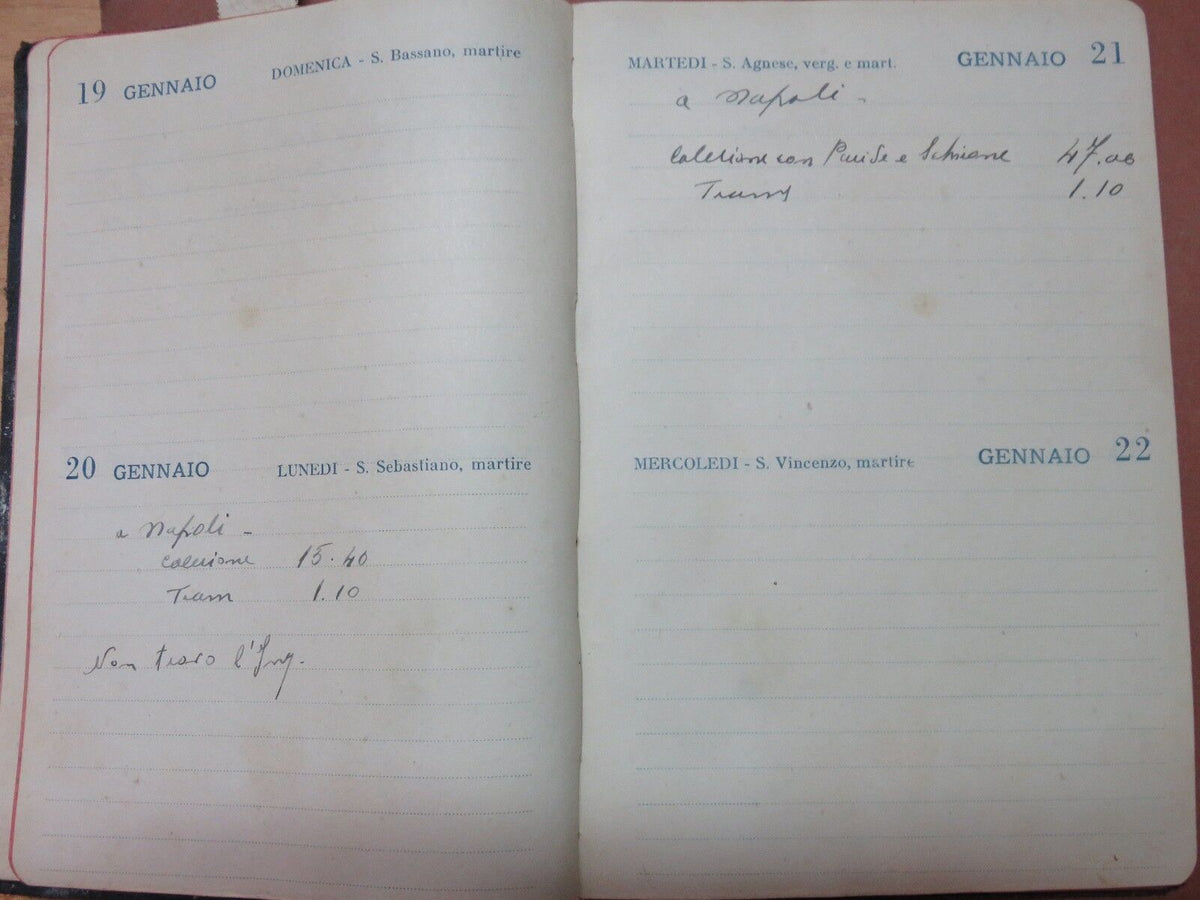 19 GENNAIO DOMENICA - S. Bassano, martire
20 GENNAIO LUNEDI - S. Sebastiano, martire
a Napoli -
colazione 15.40
Tram 1.10
Non trovo l'Ing.
MARTEDI - S. Agnese, verg. e mart. GENNAIO 21
a Napoli -
Colazione con e 47.00
Trams 1.10
MERCOLEDI - S. Vincenzo, martire GENNAIO 22